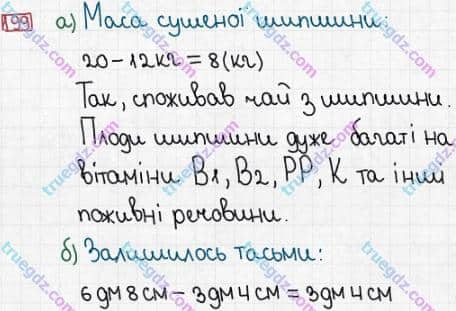 199 а) Маса сушеної шипшини:
20-12кг = 8(кг)
Так, споживав чай з шипшини.
Плоди шипшини дуже багаті на
вітаміни В1, В2, РР, К та інші
поживні речовини.
б) Залишилось тасьми:
6 дм 8 см - 3 дм 4 см = 3 дм 4 см